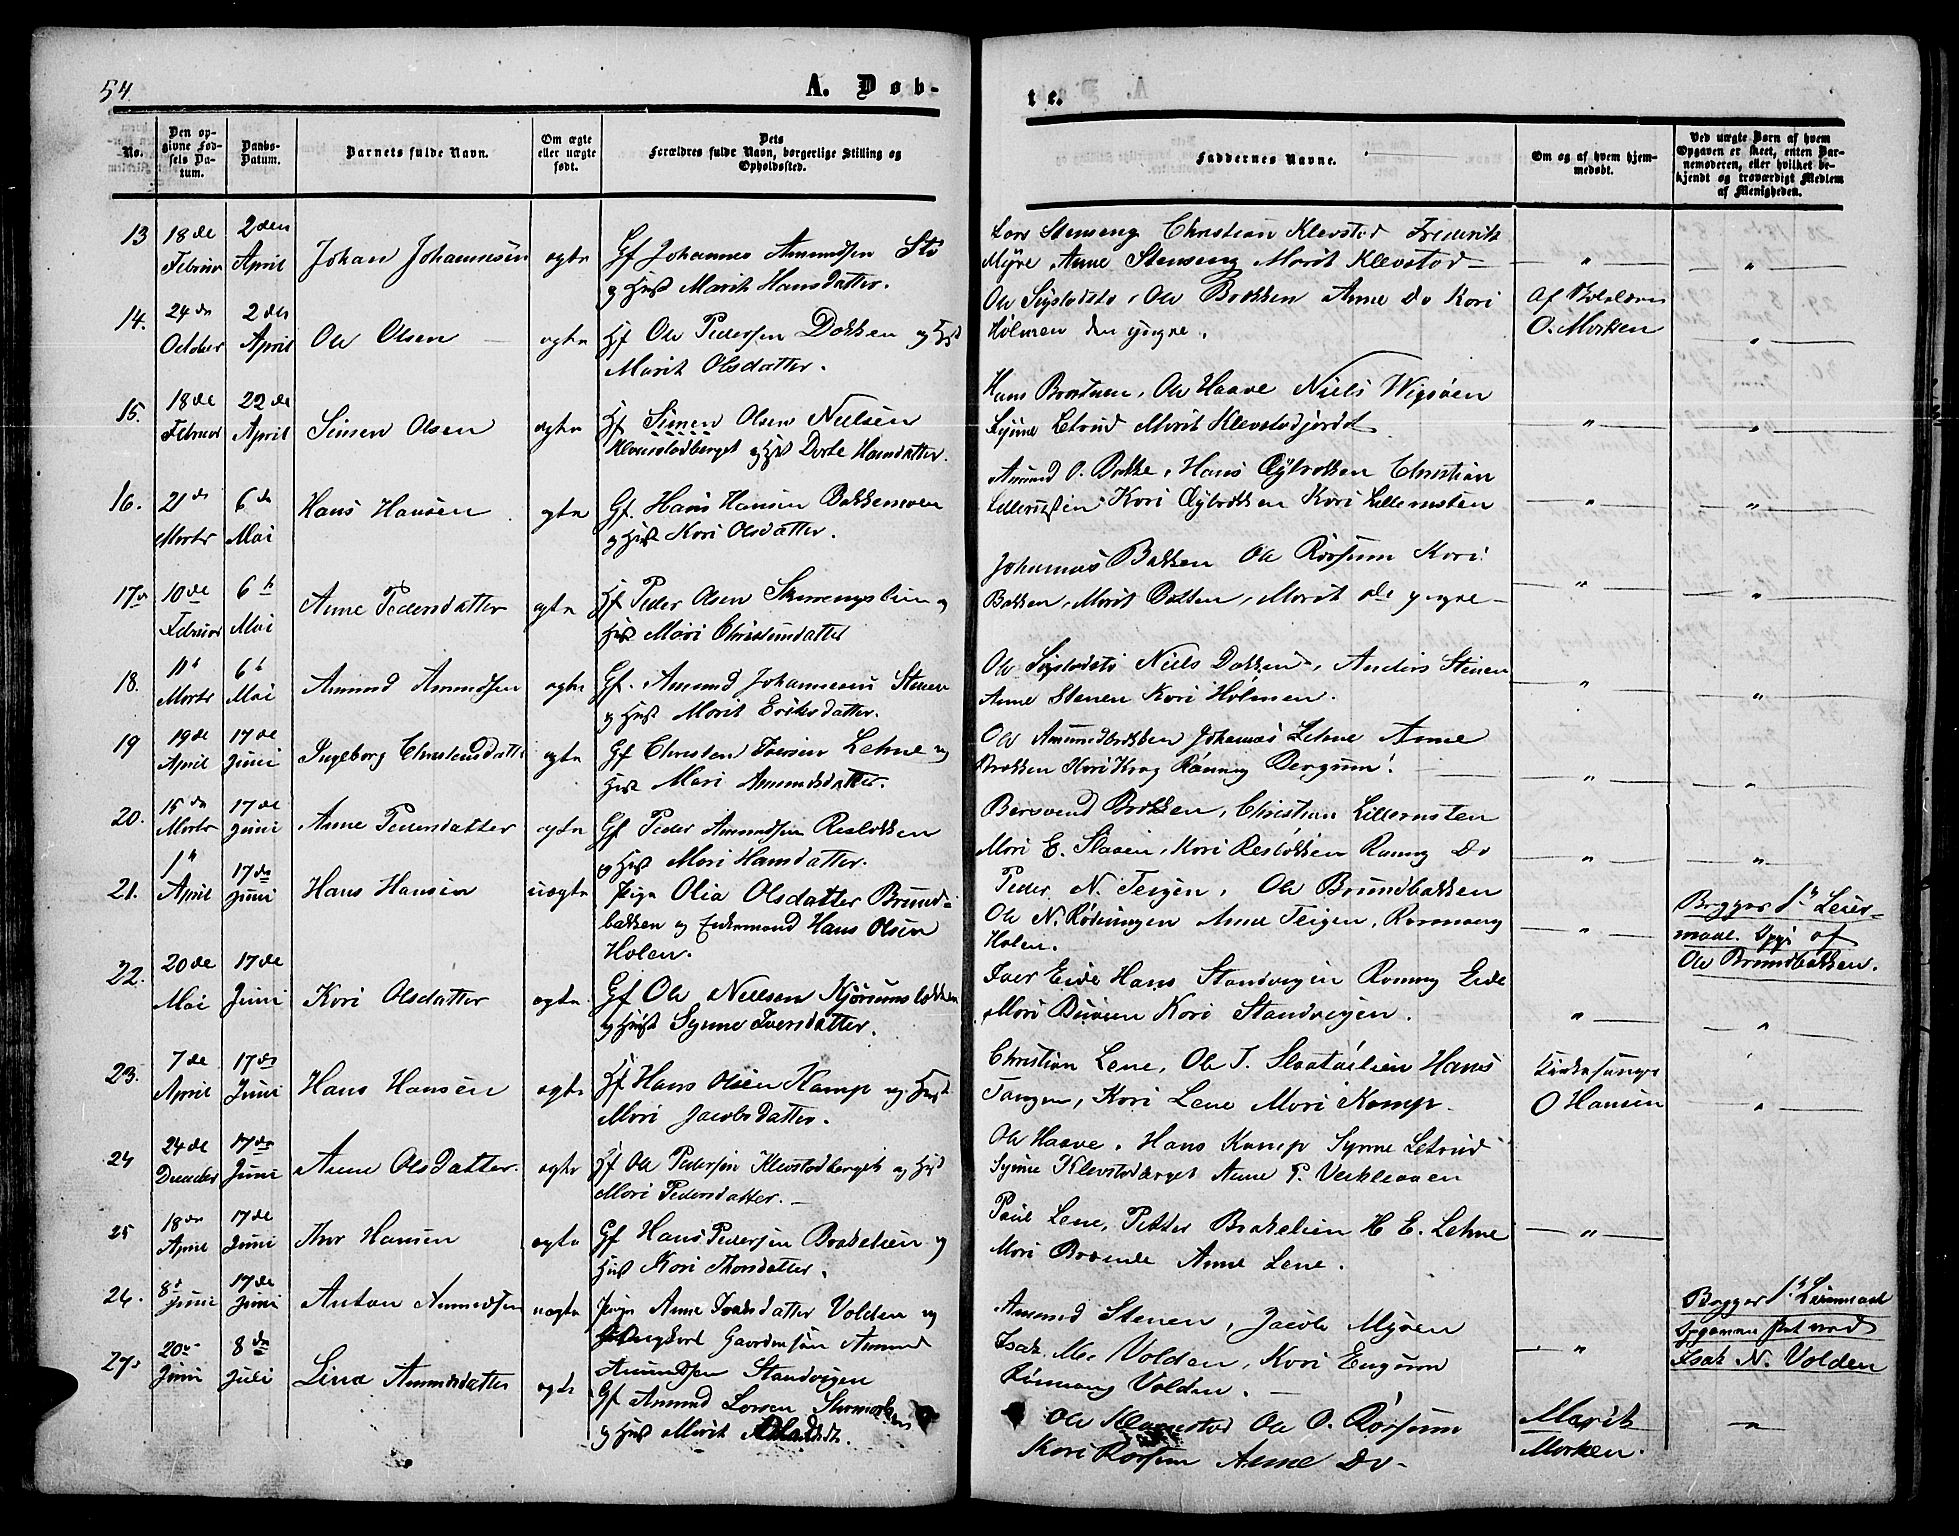 54.
A. Døb-
te.
No.
Den op-
givne Fød-
sels Da-
tum.
Daabs-
Datum.
Barnets fulde Navn.
Om ægte
eller uægte
født.
Dets
Forældres fulde Navn, borgerlige Stilling og
Opholdssted.
Faddernes Navne.
Om og af hvem hjem-
medøbt.
Ved uægte Børn af hvem
Opgaven er skeet, enten Bar-
nemoderen, eller hvilket be-
kjendt og troværdigt Medlem
af Menigheden.
13 18de Februar 2den April Johan Johannesen ægte
Gf Johannes Amundsen Stø
og Hust Marit Hansdatter.
Lars Stenseng Christian Klevstad Frederik
Myre, Anne Stenseng Marit Klevstad
14. 24de October 2den April Ole Olsen ægte
Hf Ole Pedersen Dokken og Hust
Marit Olsdatter.
Ole Ole Bakken Anne Do Kari
Holmen den yngre.
Af
O. Morken
15. 18de Februar 22de April Simen Olsen ægte
Hf Simen Olsen Nielsen
Klevstadberget og Hust Dorte Hansdatter.
Hans Ole Haave Niels Wigsøen
Synne Letrud Marit Klevstadjordet
16. 21de Marts 6de Mai Hans Hansen ægte
Gf. Hans Hansen Bakkemoen
og Hust Kari Olsdatter.
Amund O. Bakke, Hans Christian
Kari Kari Lillernsten
17de 10de Februar 6te Mai Anne Pedersdatter ægte
Hf Peder Olsen og
Hust Mari Christensdatter
Johannes Bakken Ole Rørsum Kari
Bakken, Marit Bakken, Marit de yngre
18. 11te Marts 6te Mai Amund Amundsen ægte
Gf. Amund Johannesen Stenen
og Hust Marit Eriksdatter.
Ole Niels Dokken, Anders Stenen
Anne Stenen Kari Holmen.
19 19de April 17de Juni Ingeborg Christensdatter ægte
Gf Christen Iversen Lehne og
Hust Mari Amundsdatter.
Ole Amundbakken Johannes Lehne Anne
Bakken Kari Krog Rønnug Bergum.
20. 15de Marts 17de Juni Anne Pedersdatter ægte
Gf Peder Amundsen Resløkken
og Hust Mari Hansdatter.
Bersvend Bakken, Christian Lillernsten
Mari E. Slaaen, Kari Resløkken Rønnug Do
21. 1te April 17de Juni Hans Hansen uægte
Pige Olia Olsdatter Brund-
bakken og Enkemand Hans Olsen
Holen.
Peder N. Teigen, Ole Brundbakken
Ole N. Rødningen Anne Teigen, Rønnaug
Holen.
Begges 1te Leier-
maal. Opgi af
Ole Brundbakken.
22. 20de Mai 17de Juni Kari Olsdatter ægte.
Gf Ole Nielsen Kjørumsløkken
og Hust Synne Iversdatter.
Iver Eide Hans Standvigen Rønnug Eide
Mari Kari Standvigen.
23. 7de April 17de Juni Hans Hansen ægte
Hf Hans Olsen Kamp og Hust
Mari Jacobsdatter.
Christian Lene, Ole T. Hans
Tangen, Kari Lene Mari Kamp.
Kirkesanger
O Hansen
24 24de December 17de Juni Anne Olsdatter. ægte
Hf Ole Pedersen Klevstadberget og Hust
Mari Pedersdatter.
Ole Haave. Hans Kamp Synne Letrud
Synne Klevstadberget Anne P. Veikleaaen
25 18de April 17de Juni Thor Hansen ægte
Gf Hans Pedersen Brakelien og
Hust Kari Thorsdatter.
Paul Lene, Petter Brakelien H E. Lehne
Mari Brænde Anne Lene.
26. 8de Juni 17de Juni Anton Amundsen uægte
Pige Anne Isaksdatter Volden og
Ungkarl Gaardmansøn Amund
Amundsen Standvigen
Amund Stenen, Jacob Myren
Isak M. Volden, Kari Engum
Rønnaug Volden.
Begges 1te Leiermaal
Opgaven sket ved
Isak N. Volden
27. 20de Juni 8de Juli Lina Amundsdatter ægte
Gf Amund Larsen
og Hust Marit
Ole Ole O. Rørsum
Kari Rørsum Anne Do
Marit
Morken.